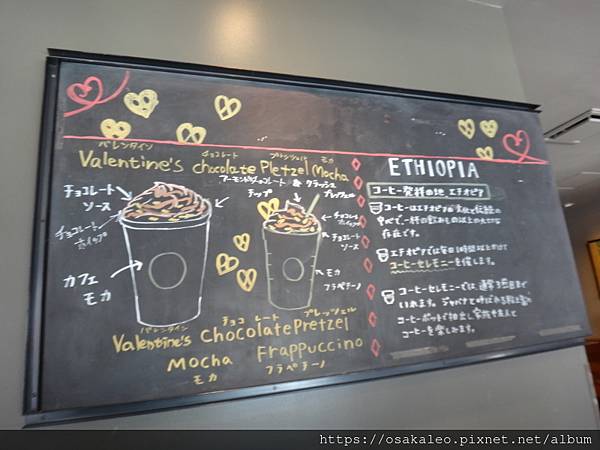 バレンタイン チョコレート プレッツェル モカ
Valentine's chocolate Pletzel Mocha
チョコレート
ソース
チョコレート
ホイップ
カフェ
モカ
アーモンド&チョコレート & クラッシュ
チップ プレッツェル
チョコレート
ホイップ
チョコレート
ソース
モカ
フラペチーノ
バレンタイン チョコ レート プレッツェル
Valentine's Chocolate Pretzel
Mocha Frappuccino
モカ フラペチーノ
ETHIOPIA
コーヒー発祥の地 エチオピア
コーヒーはエチオピアの文化と伝統の
中心で、一杯の飲みもの以上の大切な
存在です。
エチオピアでは毎日1時間以上かけて
コーヒーセレモニーを催します。
コーヒーセレモニーでは、通常3杯目まで
いれます。ジャバナと呼ばれる
コーヒーポットで抽出し家族や友人と
コーヒーを楽しみます。
https://osakaleo.pixnet.net/album